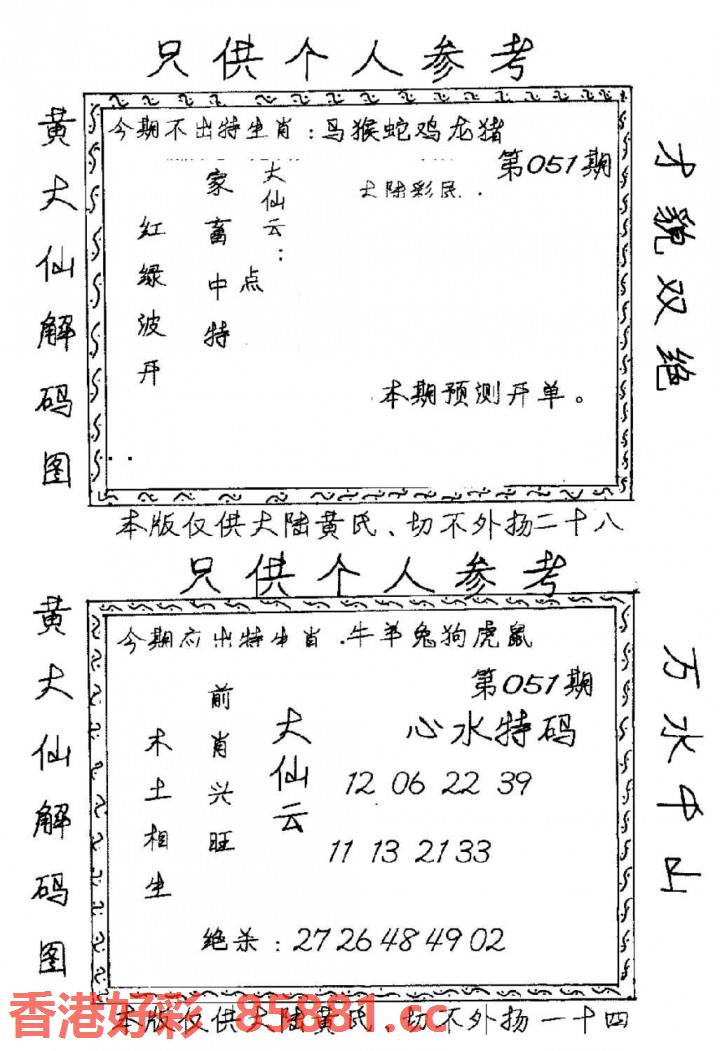 只供个人参考
黄大仙解码图
今期不出特生肖：马猴蛇鸡龙猪
第051期
大陆彩民.
大仙云：
家畜中特
点
红绿波开
本期预测开单。
才貌双绝
本版仅供大陆黄氏、切不外扬二十八
只供个人参考
黄大仙解码图
今期应出特生肖.牛羊兔狗虎鼠
第051期
心水特码
大仙云
前肖兴旺
木土相生
12 06 22 39
11 13 21 33
绝杀：27 26 48 49 02
万水千山
香港好彩 85881.cc
本版仅供大陆黄氏、切不外扬一十四